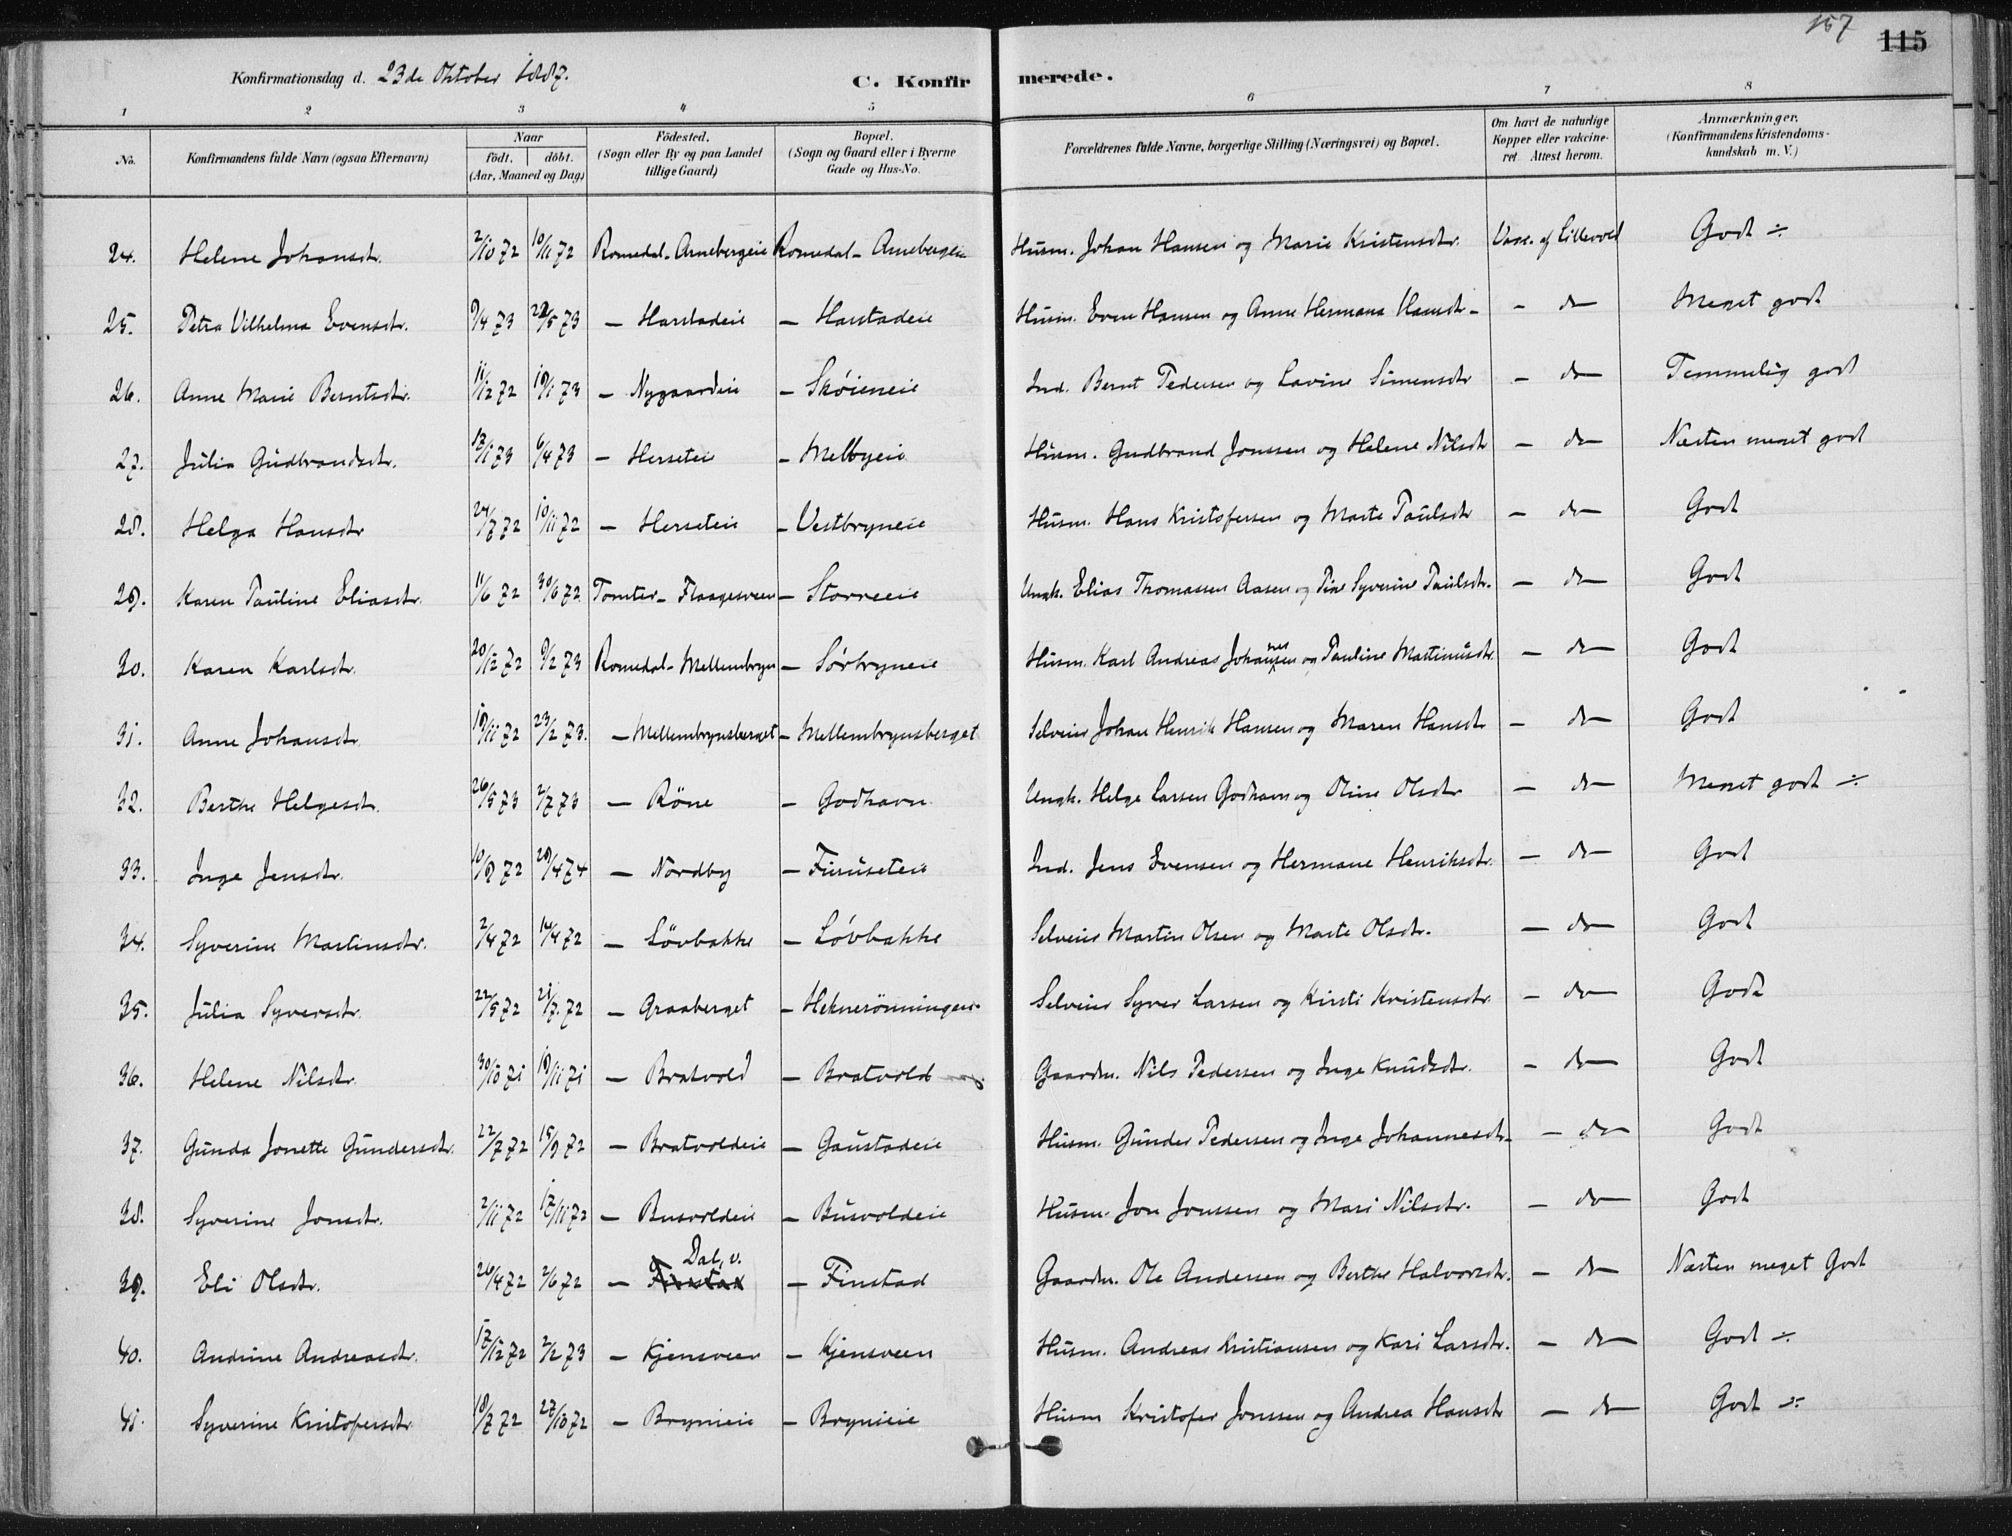 157
115
Konfirmationsdag d. 23de Oktober 1887.
C. Konfirmerede.
1 2 3 4 5 6 7 8
No. Konfirmandens fulde Navn (ogsaa Efternavn) Naar födt. döbt. (Aar, Maaned og Dag) Födested. (Sogn eller By og paa Landet tillige Gaard) Bopæl. (Sogn og Gaard eller i Byerne Gade og Hus-No. Forældrenes fulde Navne, borgerlige Stilling (Næringsvei) og Bopæl. Om havt de naturlige Kopper eller vakcineret. Attest herom. Anmærkninger. (Konfirmandens Kristendomskundskab m. V.)
24. Helene Johansdtr. 2/10 72 10/11 72 Romedal - Arnebergeie Romedal - Arnebergeie Husm. Johan Hansen og Marie Kristensdtr. Vacc. af Lillevold Godt ÷
25. Petra Vilhelma Evensdtr. 9/4 73 22/5 73 — Harstadeie — Harstadeie Husm. Even Hansen og Anne Hermana Hansdtr - — do — Meget godt
26. Anne Marie Berntsdtr. 11/12 72 19/1 73 — Nygaardeie — Skøieneie Ind. Bernt Pedersen og Lavine Simensdtr — do — Temmelig godt
27. Julia Gudbrandsdtr. 17/1 73 6/4 73 — Herseteie — Melbyeie Husm. Gudbrand Jonssen og Helene Nilsdtr — do — Næsten meget godt
28. Helga Hansdtr 24/7 72 10/11 72 — Herseteie — Vestbryneie Husm. Hans Kristofersen og Marte Paulsdtr — do — Godt
29. Karen Pauline Eliasdtr. 11/6 72 30/6 72 Tomter - Flaagesveen — Storreeie Ungk. Elias Thomassen Aasen og Pike Syverine Paulsdtr. — do — Godt
30. Karen Karlsdtr. 20/12 72 9/2 73 Romedal - Mellembryn — Sørbryneie Husm. Karl Andreas Johannesen og Pauline Martinusdtr. — do — Godt
31. Anne Johansdtr 19/11 72 23/2 73. — Mellembrynsberget — Mellembrynsberget Selveier Johan Henrik Hansen og Maren Hansdtr — do — Godt
32. Berthe Helgesdtr. 26/5 73 2/7 73 — Röne — Godhavn Ungk. Helge Larsen Godhavn og Oline Olsdtr — do — Meget godt ÷
33. Inge Jensdtr. 10/9 72 29/4 74 — Nordby — Furuseteie Ind. Jens Evensen og Hermane Henriksdtr. — do — Godt
34. Syverine Martinsdtr. 2/4 72 14/4 72 — Lövbakke — Lövbakke Selveier Martin Olsen og Marte Olsdtr. — do — Godt
35. Julia Syversdtr. 22/5 72 21/7 72 — Graaberget — Heknerönningen Selveier Syver Larsen og Kirsti Kristensdtr. — do — Godt
36. Helene Nilsdtr. 30/10 71 19/11 71 — Bratvold — Bratvold Gaardm. Nils Pedersen og Inge Knudsdtr. — do — Godt
37. Gunda Jonette Gundersdtr. 22/7 72 15/9 72 — Bratvoldeie — Gaustadeie Husm. Gunder Pedersen og Inge Johannesdtr — do — Godt
38. Syverine Jonsdtr. 2/11 72 17/11 72 — Busvoldeie — Busvoldeie Husm. Jon Jonssen og Mari Nilsdtr. — do — Godt
39. Eli Olsdtr. 26/4 72 2/6 72 — Finstad Dal, v. — Finstad Gaardm. Ole Andersen og Berthe Halvorsdtr. — do — Næsten meget Godt
40. Andrine Andreasdtr. 17/12 72 2/2 73 — Kjensveen — Kjensveen Husm. Andreas Kristiansen og Kari Larsdtr. — do — Godt ÷
41. Syverine Kristofersdtr 18/7 72 27/10 72 — Brynieie — Brynieie Husm Kristofer Jonssen og Andrea Hansdtr — do — Godt ÷